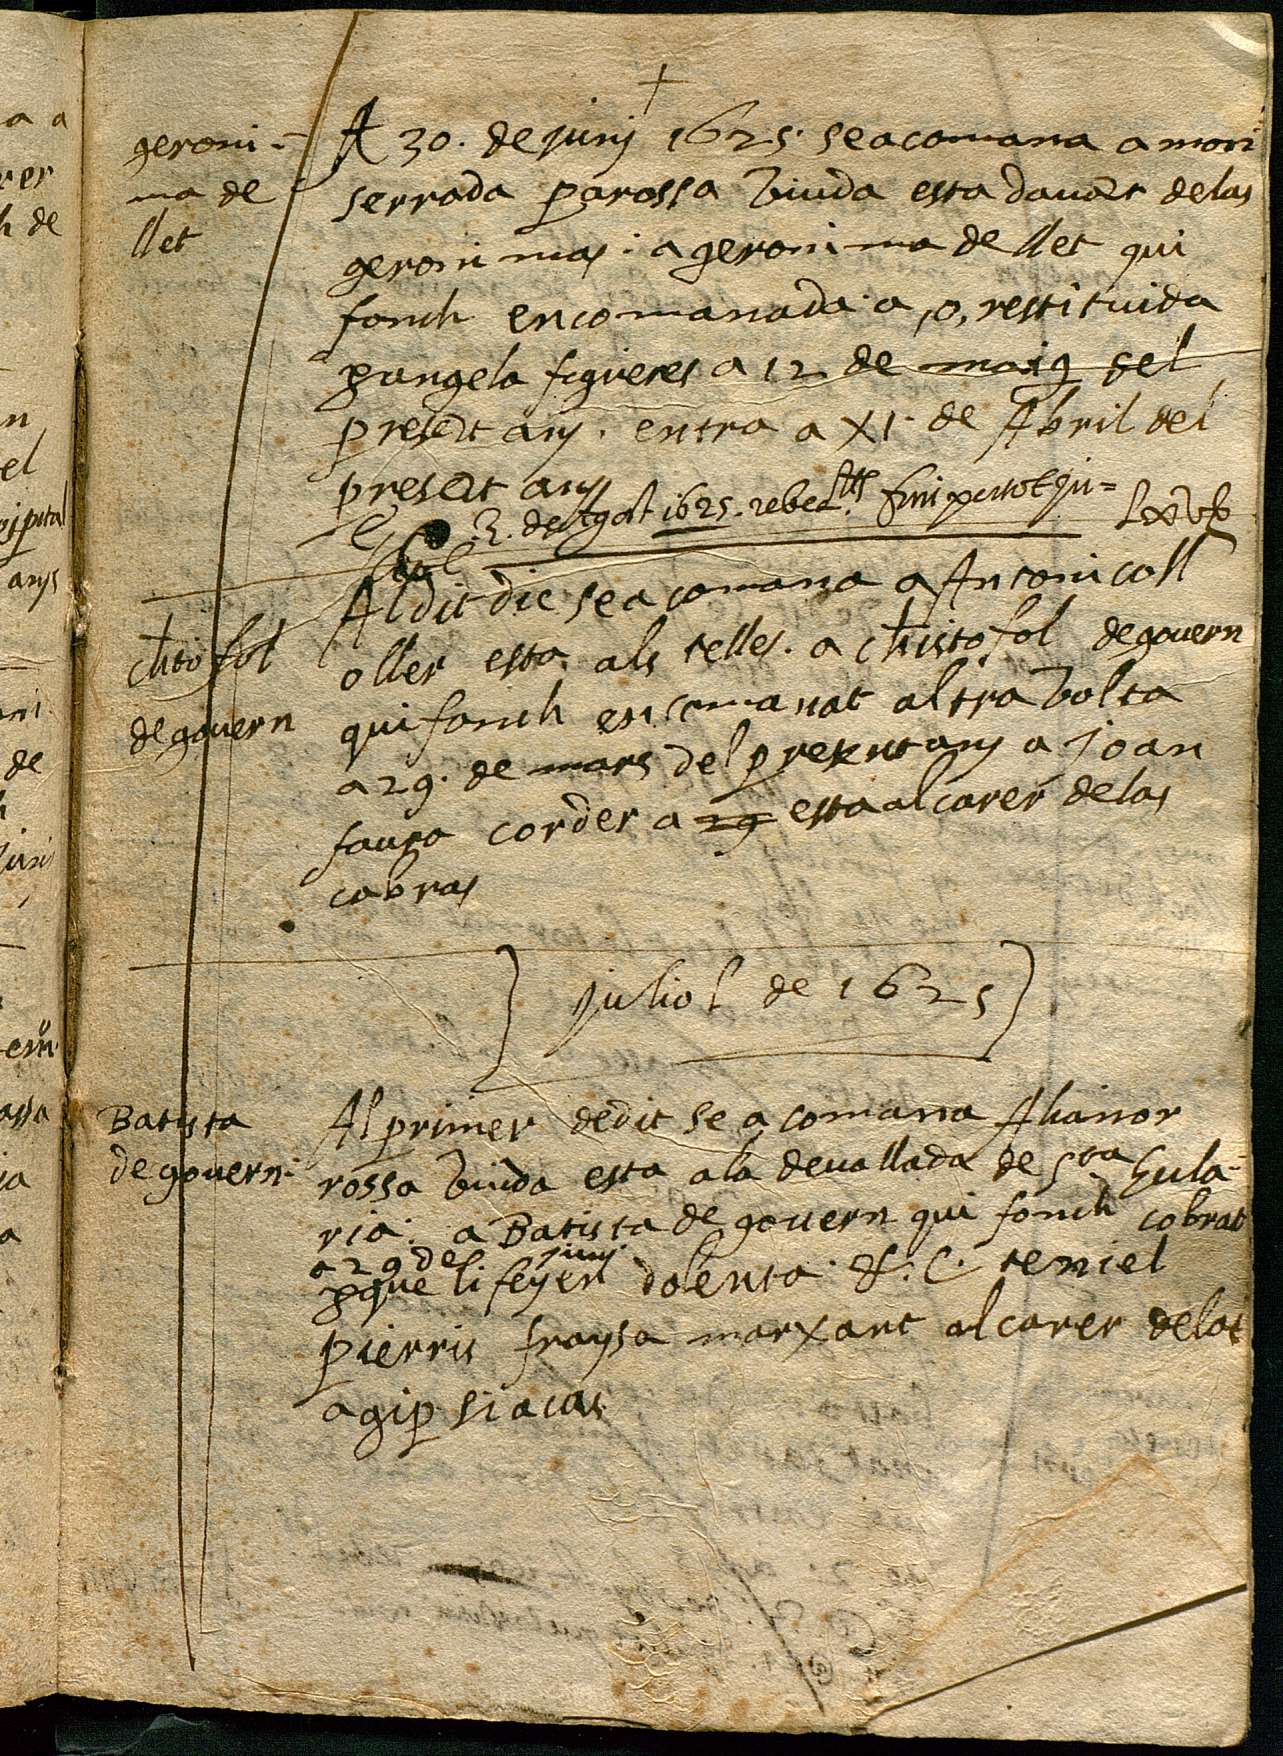 geroni-
ma de
llet
A 30. de juny 1625. se acomana a mori
serrada parossa viuda esta davant delas
geronimas. a geronima de llet qui
fonch encomanada a, o, restituida
pangela figueres a 12 de maig del
present any. entra a XI de Abril del
present any
2. de Agost 1625. rebec fins pertot ju=
Chtofol
degovern
Al dit die se a comana a Antoni coll
oller esta als telles. a Christofol degovern
qui fonch en comanat altra volta
a 29. de mars del present any a Joan
faura corder a 29 esta al carer de las
cabras
juliol de 1625
Batista
degovern.
Al primer de dit se a comana Alianor
rossa viuda esta a la devallada de Sta Eula-
ria. a Batista de govern qui fonch cobrat
a 29 del juny
pque li feyen dolenta tenie l
pierris fraysa marxant al carer de las
agipsiacas